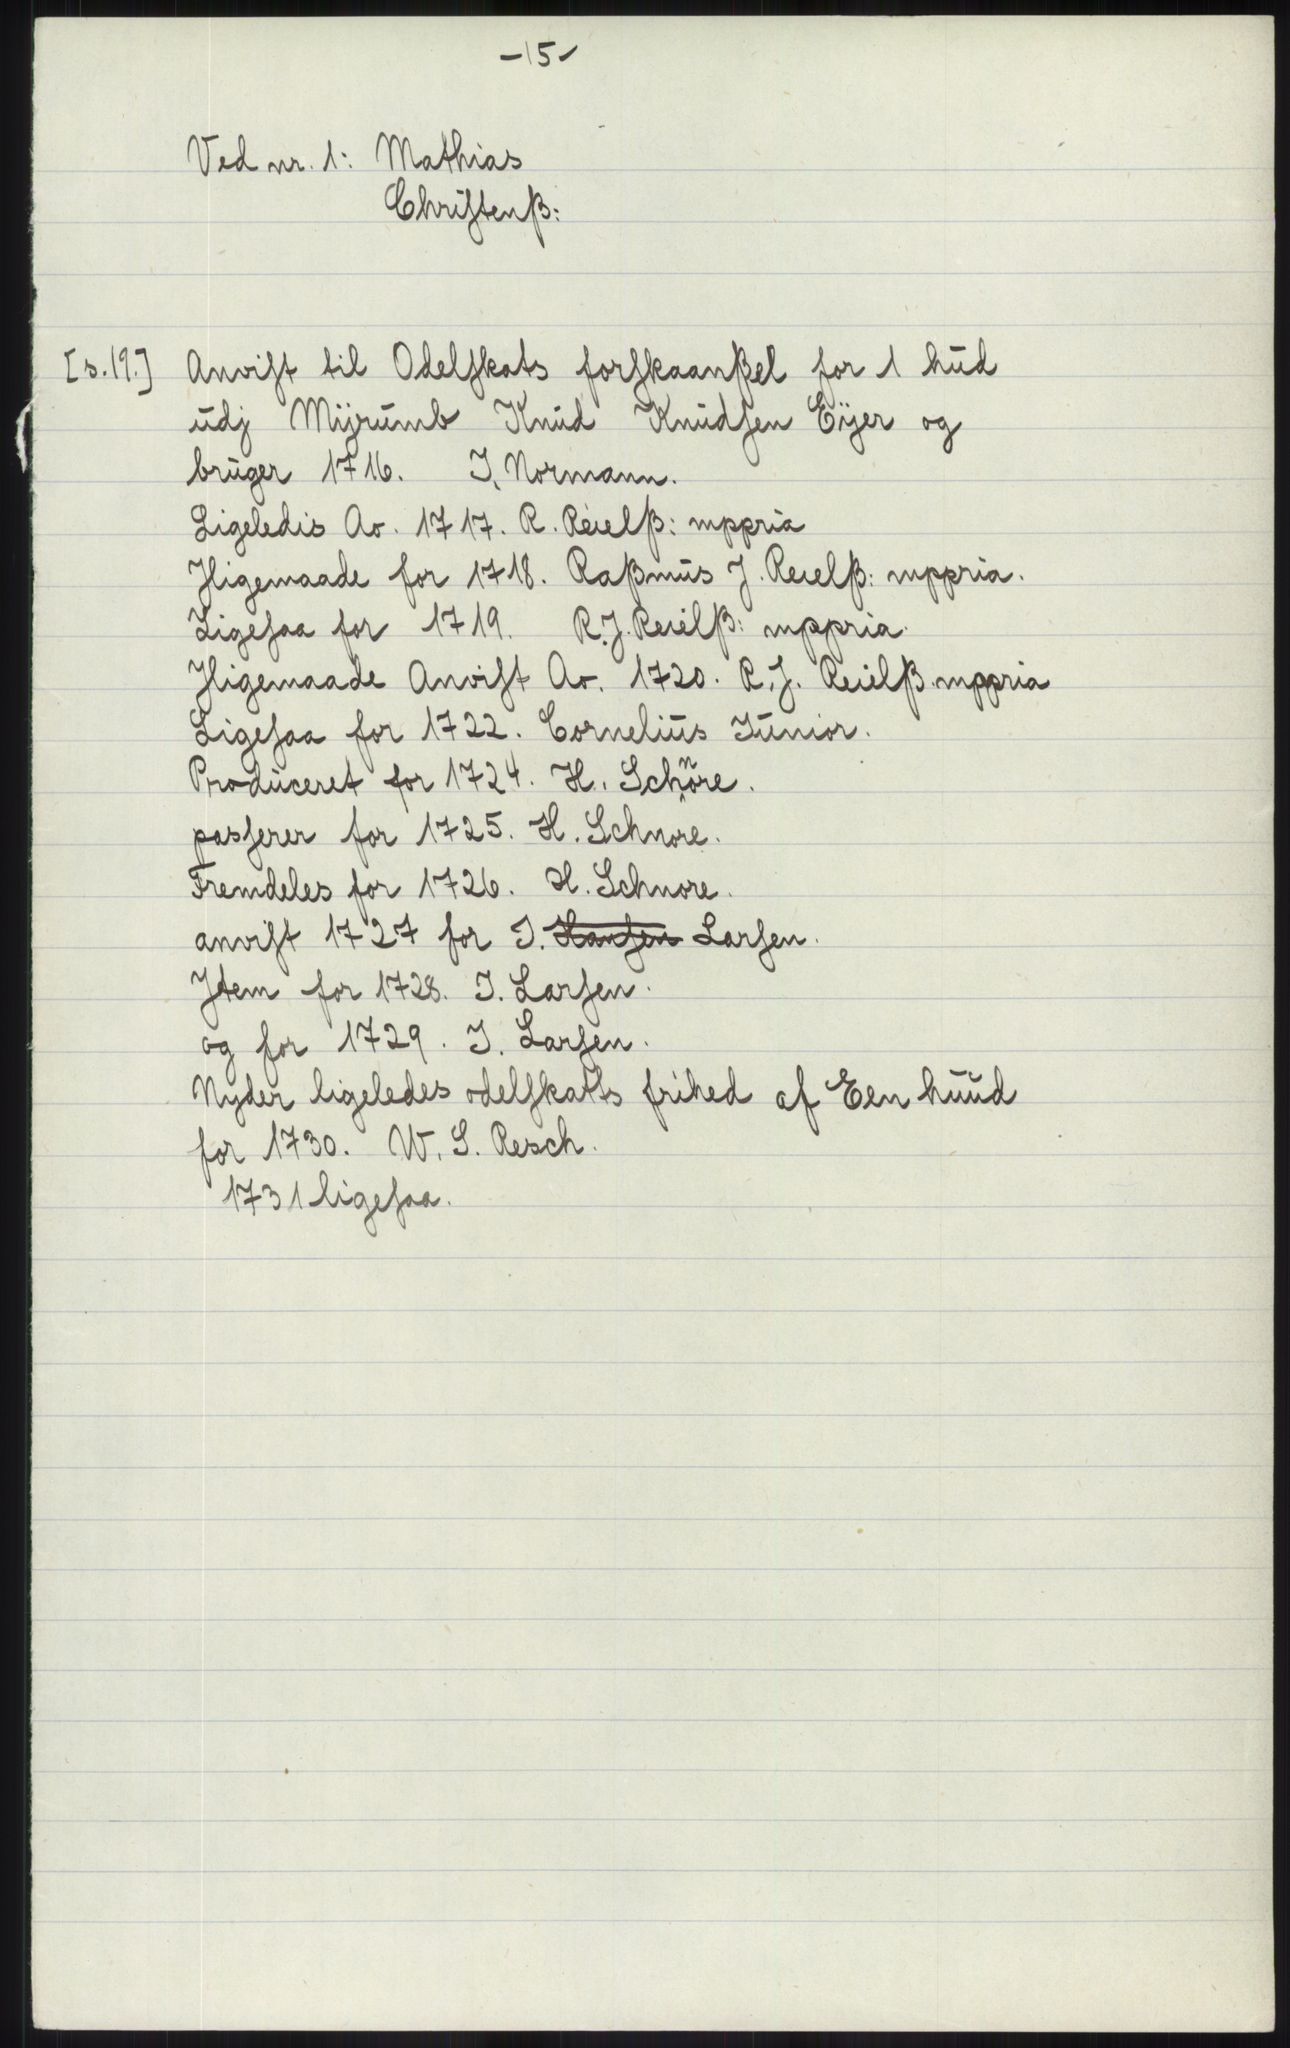 -15-
Ved nr. 1: Mathias
Chriſtenß:
[s.19.] Anviſt til Odelſkats forſkaanßel for 1 hud
udj Mijrumb Knud Knudſen Eÿer og
bruger 1716. I. Normann.
Ligeledis Ao. 1717. R. Reielß: mppria
Jligemaade for 1718. Raßmus J. Reielß: mppria.
Ligeſaa for 1719. R. J. Reielß: mppria.
Jligemaade Anviſt Ao. 1720. R. J. Reielß mppria
Ligeſaa for 1722. Cornelius Iunior.
Produceret for 1724. H. Schnöre.
pasſerer for 1725. H. Schnore.
Fremdeles for 1726. H. Schnore.
anviſt 1727 for I. Hanſen Larſen.
Jtem for 1728. I. Larſen.
og for 1729. I. Larſen.
Nyder ligeledes odelſkatts frihed af Een huud
for 1730. W. S. Resch.
1731 ligeſaa.